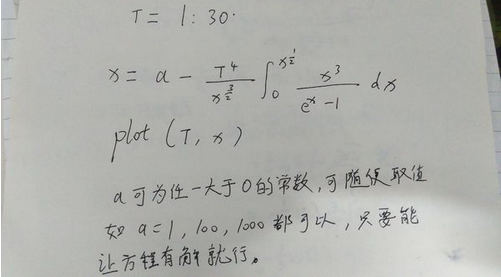 T = 1:30.
x = a - \frac{T^4}{x^{\frac{3}{2}}} \int_0^{x^{\frac{1}{2}}} \frac{x^3}{e^x - 1} dx
plot (T, x)
a 可为任一大于0的常数,可随便取值
如 a=1, 100, 1000 都可以,只要能
让方程有解就行。